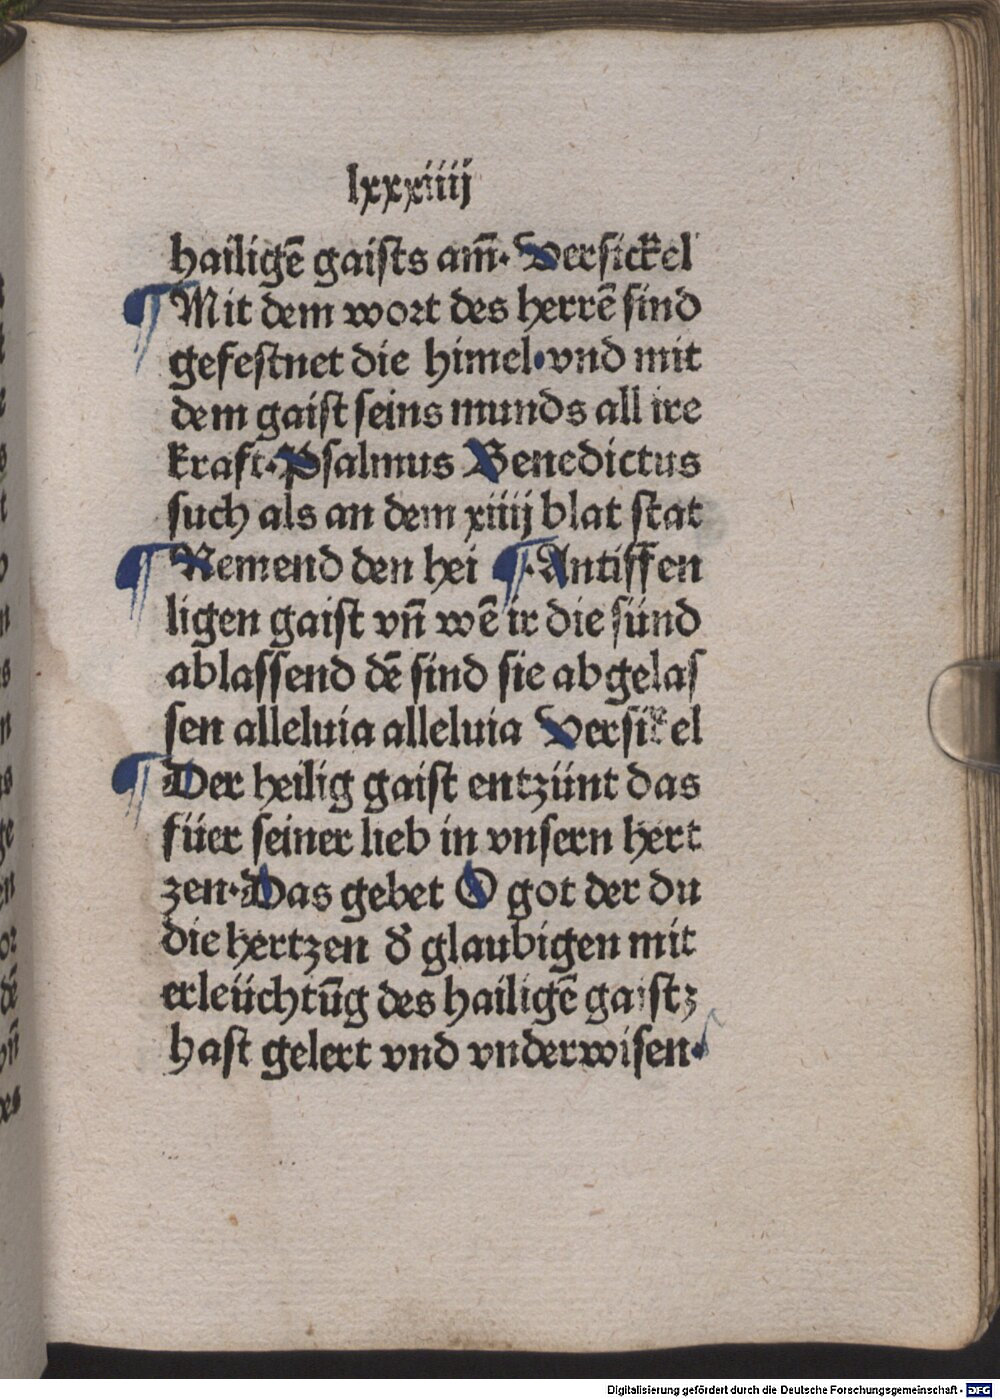 lxxxiiij
hailigē gaists am̄· Versickel
¶ Mit dem wort des herrē sind
gefestnet die himel·vnd mit
dem gaist seins munds all ire
kraft·Psalmus Benedictus
such als an dem xiiij blat stat
¶ Nemend den hei ¶·Antiffen
ligen gaist vn̄ wē ir die sünd
ablassend dē sind sie abgelas
sen alleluia alleluia Versikel
¶ Der heilig gaist entzünt das
füer seiner lieb in vnsern hert
zen·Das gebet O got der du
die hertzen d' glaubigen mit
erleüchtūg des hailigē gaistz
hast gelert vnd vnderwisen·
Digitalisierung gefördert durch die Deutsche Forschungsgemeinschaft - DFG